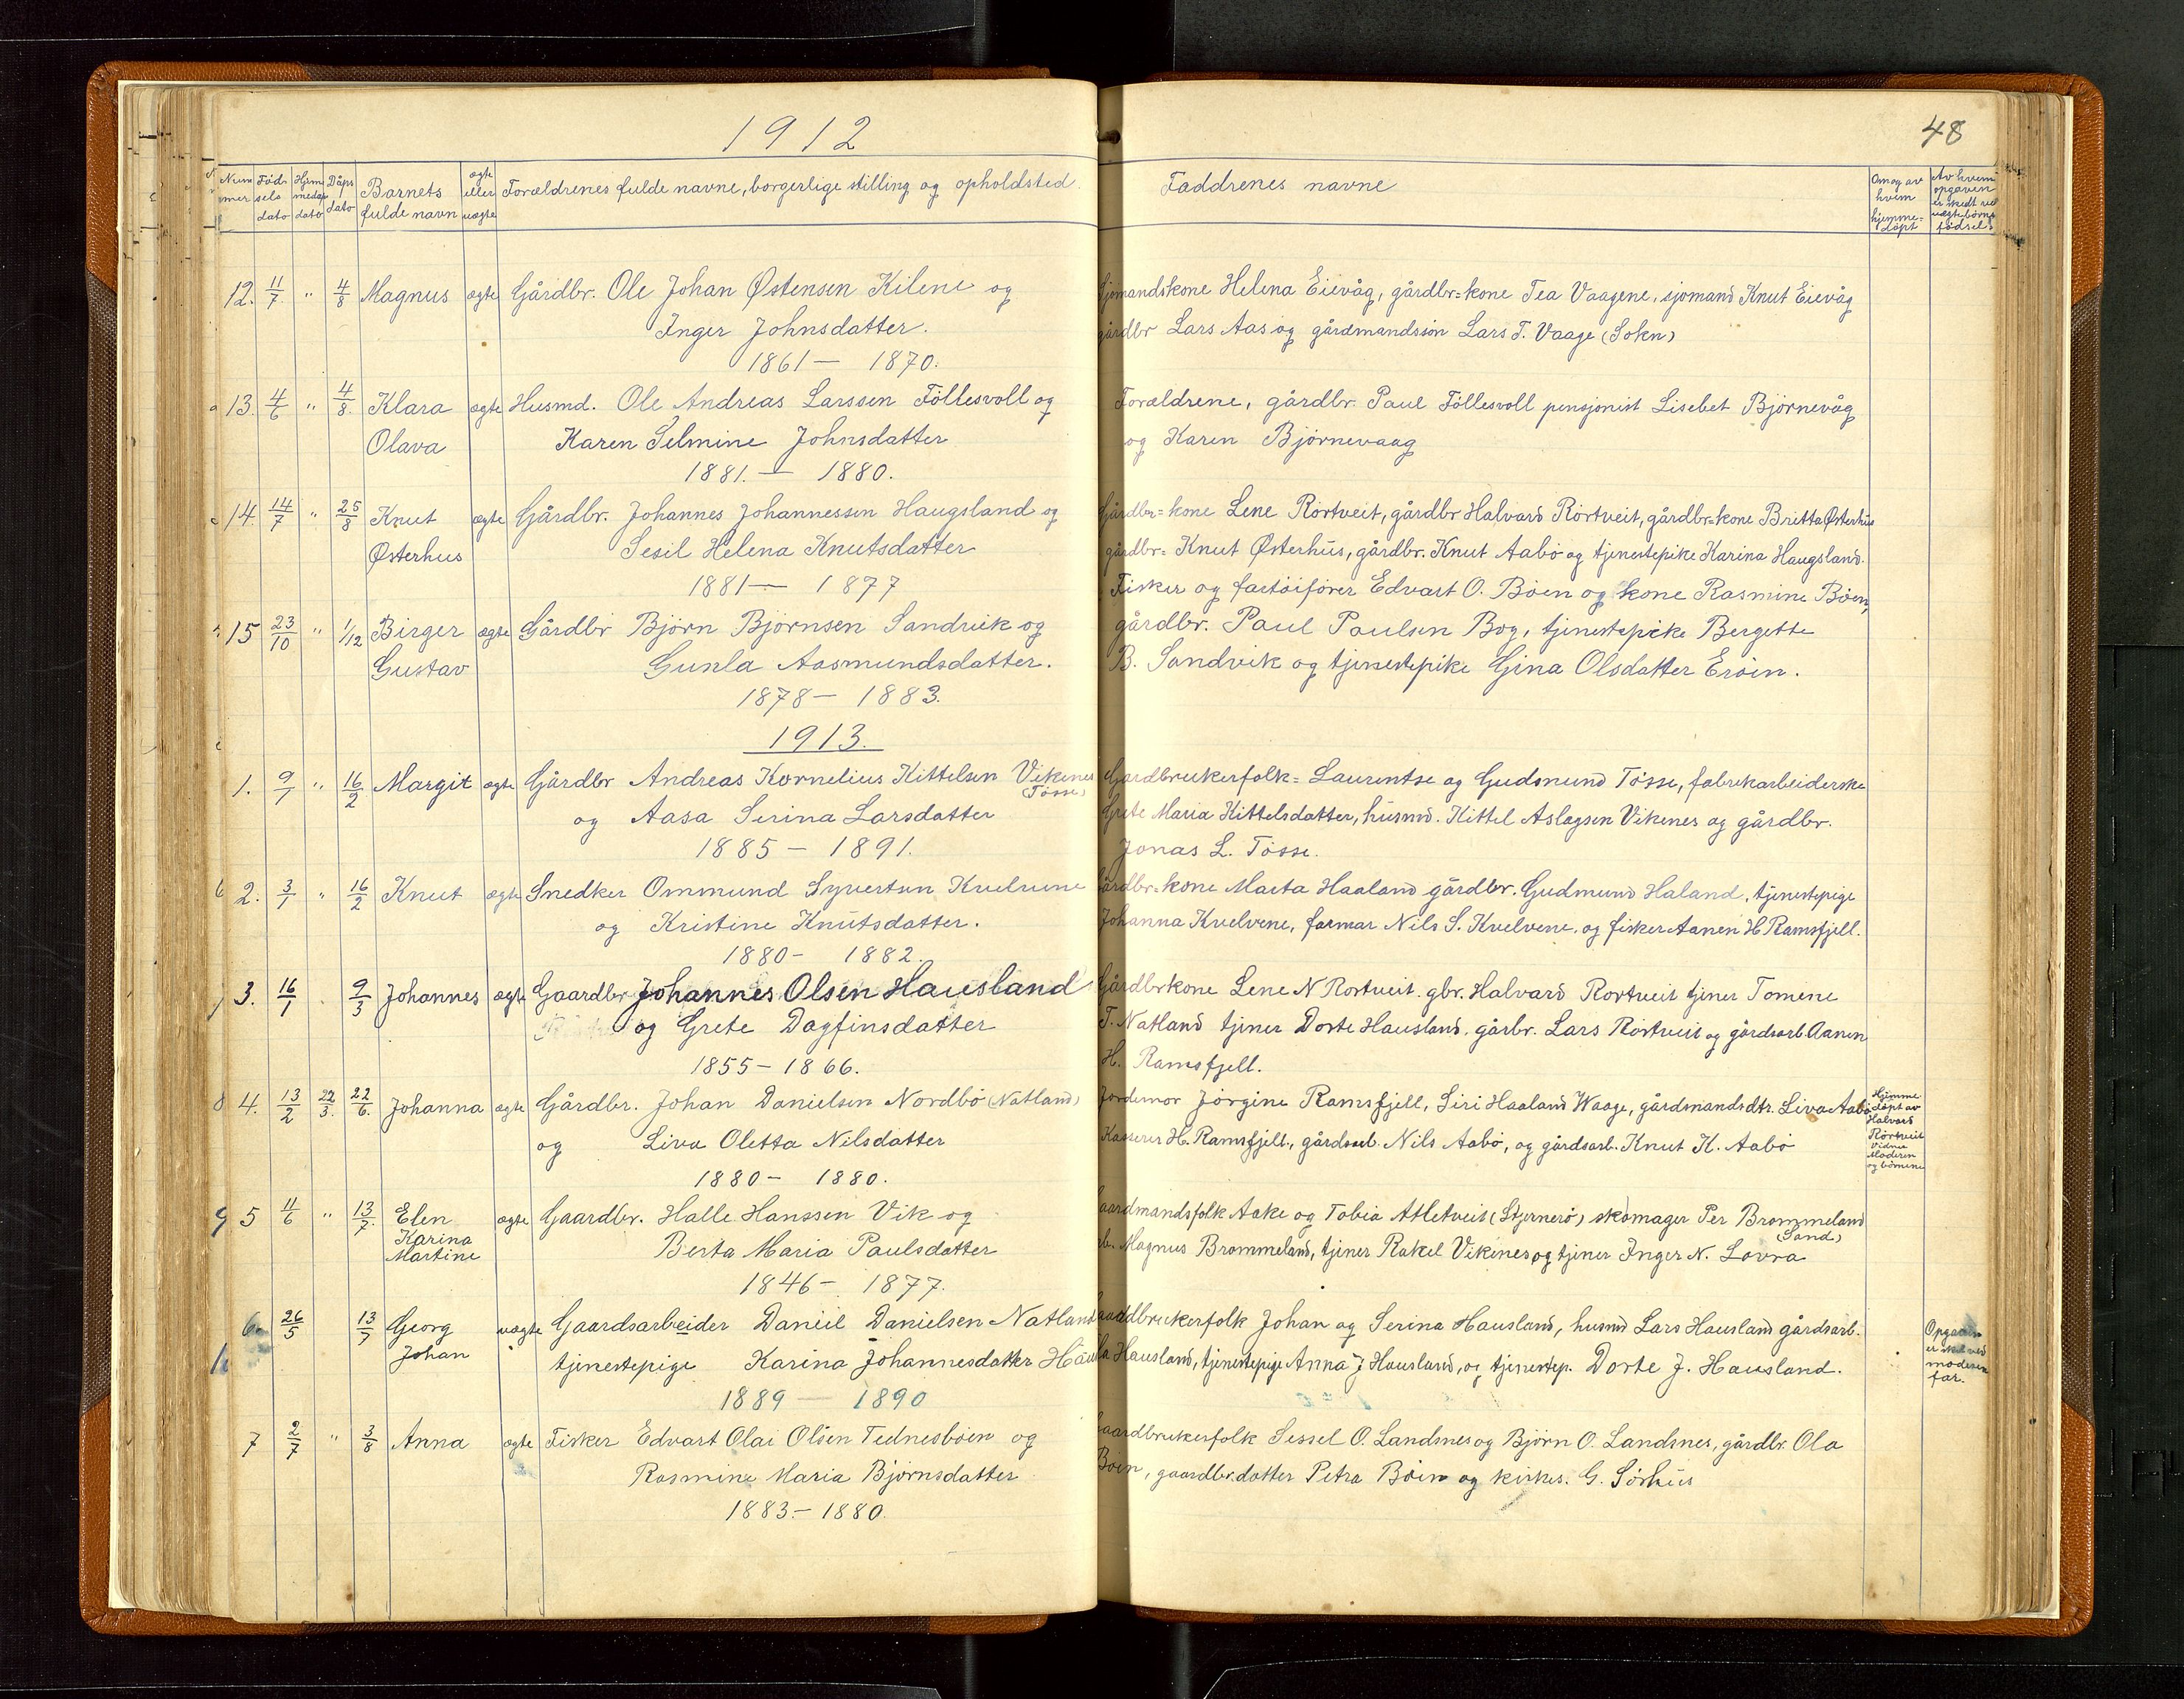 1912
48
Num mer
Föd- sels dato
Hjem medøp dato
Dåps dato
Barnets fulde navn
ægte eller uægte
Forældrenes fulde navne, borgerlige stilling og opholdsted.
Faddrenes navne
Om og av hvem hjemme= døpt
Av hvem opgaven er skedt ved uægte börns födsel.
12. 11/7 " 4/8 Magnus ægte Gårdbr. Ole Johan Østensen Kilene og
Inger Johnsdatter.
1861 — 1870.
Sjömandskone Helena Eievåg, gårdbr=kone Tea Vaagene, sjømand Knut Eievåg
gårdbr Lars Aas og gårdmandssön Lars T. Vaage (Sokn)
13. 4/6 " 4/8. Klara Olava ægte Husmd. Ole Andreas Larssen Föllesvoll og
Karen Selmine Johnsdatter
1881. — 1880.
Forældrene, gårdbr. Paul Föllesvoll pensjonist Lisebet Björnevåg
og Karen Björnevaag
14. 14/7 " 25/8 Knut Østerhus ægte Gårdbr. Johannes Johannessen Haugsland og
Sesil Helena Knutsdatter
1881 — 1877
Gårdbr=kone Lene Rörtveit, gårdbr Halvard Rörtveit, gårdbr=kone Britta Østerhus
gårdbr= Knut Østerhus, gårdbr. Knut Aabö og tjenestepike Karina Haugsland.
15 23/10 " 1/12 Birger Gustav ægte Gårdbr Björn Björnsen Sandvik og
Gunla Aasmundsdatter.
1878 — 1883.
Fisker og fartöiförer Edvart O. Böen og kone Rasmine Böen,
gårdbr. Paul Paulsen Bog, tjenestepike Bergette
B. Sandvik og tjenestepike Gina Olsdatter Eröen.
1913.
1. 9/1 " 16/2 Margit ægte Gårdbr Andreas Kornelius Kittelsen Vikenes
(Tösse)
og Aasa Serina Larsdatter
1885 — 1891.
Gardbrukerfolk= Laurentse og Gudmund Tösse, fabrikarbeiderske
Grete Maria Kittelsdatter, husmd. Kittel Aslagsen Vikenes og gårdbr.
Jonas L. Tösse.
2. 3/1 " 16/2 Knut ægte Snedker Ommund Syvertsen Kvelvene
og Kristine Knutsdatter.
1880 - 1882.
Gårdbr=kone Marta Haaland gårdbr. Gudmund Haland, tjenestepige
Johanna Kvelvene, farmar Nils S. Kvelvene, og fisker Aanen H Ramsfjell.
3. 16/1 9/3 Johannes ægte Gaardbr Johannes Olsen Hausland
og Grete Dagfinsdatter
1855 — 1866.
Gårdbrkone Lene N Rortveit. gbr. Halvard Rortveit tjener Tomine
T. Natland tjener Dorte Hausland. gårbr. Lars Rörtveit og gårdsarb Aanen
H. Ramsfjell.
4. 13/2 22/3. 22/6. Johanna ægte Gårdbr. Johan Danielsen Nordbö (Natland)
og Liva Oletta Nilsdatter
1880 — 1880.
Jordemor Jörgine Ramsfjell, Siri Haaland Waage, gårdmandsdtr. Liva Aabö
Kasserer H. Ramsfjell., gårdsarb. Nils Aabö, og gårdsarb. Knut K. Aabö
Hjemme döpt av Halvard Rörtveit Vidne Moderen og
5 11/6 " 13/7. Elen Karina Martine ægte Gaardbr. Halle Hanssen Vik og
Berta Maria Paulsdatter
1846 — 1877.
Gaardmandsfolk Aake og Tobia Atletveit (Stjernerö) skomager Per Brommeland
(Sand)
Magnus Brommeland, tjener Rakel Vikenes og tjener Inger N. Lovra
6 26/5 13/7 Georg Johan uægte Gaardsarbeider Daniel Danielsen Natland
tjenestepige Karina Johannesdatter
1889 — 1890
Gaardbrukerfolk Johan og Serina Hausland, husmd Lars Hausland gårdsarb.
Hausland, tjenestepige Anna J Hausland, og tjenestep. Dorte J. Hausland.
Opgaven er skedt ved moderens far.
7 2/7 " 3/8 Anna ægte Fisker Edvart Olai Olsen Tednesböen og
Rasmine Maria Björnsdatter
1883. — 1880.
Gaardbrukerfolk Sessel O. Landsnes og Björn O. Landsnes, gårdbr. Ola
Böen, gaardbr.datter Petra Böen og kirkes. G. Sörhus